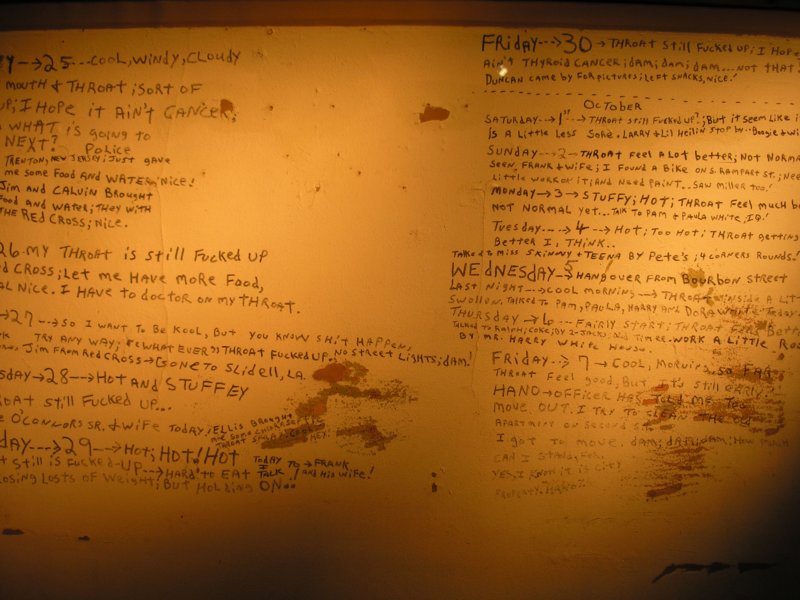 Y-->25...COOL, WINDY, CLOUDY
MOUTH & THROAT; SORT OF
UP; I HOPE it AIN'T CANCER;
WHAT iS GOiNG TO
NEXT? POLiCE
TRENTON, NEW JERSEY; JUST gave
me some Food AND WATER; Nice!
Jim AND CALViN BROUGHT
Food AND WATER; THEY WITH
THE RED CROSS; NiCE.
26 MY THROAT iS STill FUCKED UP
CROSS; LET ME HAVE MORE FOOD,
NiCE. I HAVE to DOCTOR ON MY THROAT.
->27-->SO I WANT TO BE KOOL, BUT YOU KNOW SHiT HAPPENS,
TRY ANY WAY; "WHAT EVER" THROAT FUCKED UP. NO STREET LiGHTS; DAM!
Jim FROM RED CROSS->GONE TO SLiDELL, LA.
SDAY->28-->HOT AND STUFFEY
ROAT STill FUCKED UP...
O'CONNORS SR. & WiFE TODAY; ELLiS BROUGHT
ME SOME
THROAT
DAY--->29-->HOT; HOT! HOT TODAY TO -> FRANK
STill iS FUCKED-UP--->HARD TO EAT I TALK ! AND HiS WiFE!
LOSiNG LOSTS OF WEiGHT; BUT HOLDiNG ON..
FRiDAY--->30->THROAT STill FUCKED UP; I HOPE
AiN'T THYROiD CANCER; DAM; DAM; DAM...NOT THAT
DUNCAN CAME BY FOR PiCTURES; LEFT SNACKS, NiCE!
OCTOBER
SATURDAY--->1ST->THROAT STill FUCKED UP?; BUT iT SEEM LiKE i
iS A LiTTLE LESS SORE. LARRY & LiL HEiLiN STOP BY-- BOOGiE &
SUNDAY---2--THROAT FEEL A LOT BETTER; NOT NORMA
SEEN, FRANK & WiFE; I FOUND A BiKE ON S. RAMPART ST.; NEE
LiTTLE WORK ON iT; AND NEED PAiNT...SAW MiLLER TOO!
MONDAY->3->STUFFY; HOT; THROAT FEEL MUCH b
NOT NORMAL YET...TALK TO PAM & PAULA WHiTE, I.Q.!
TUESDAY.....4-->HOT; TOO HOT; THROAT GETTiNG
BETTER I, THiNK..
TALKED TO MiSS SKiNNY & TEENA BY PETE'S; 4 CORNERS ROUNDS!
WEDNESDAY->5->HANGOVER FROM BOURBON STREET
LAST NiGHT-->COOL MORNiNG---->THROAT iNSiDE A LiT
SWOLLEN. TALKED TO PAM, PAULA, HARRY AND DORA WHiTE TODAY
THURSDAY->6...FAiRLY START; THROAT FEEL BETT
TALKED TO RALPH; COKE; BY 2-JACKS; WORK A LiTTLE
BY MR. HARRY WHiTE HOUSE
FRiDAY--->7->COOL, MORNiNG, SO FAR
THROAT FEEL GOOD, BUT STiLL
HAND->OFFiCER HAS TOLD ME TO
MOVE OUT. I TRY TO CLEAN THE OLD
APARTMENT ON SECOND ST.
I GOT TO MOVE. DAM; DAM; DAM; HOW MUCH
CAN I STAND, FOR.
YES, I KNOW iT iS CiTY
PROPERTY.